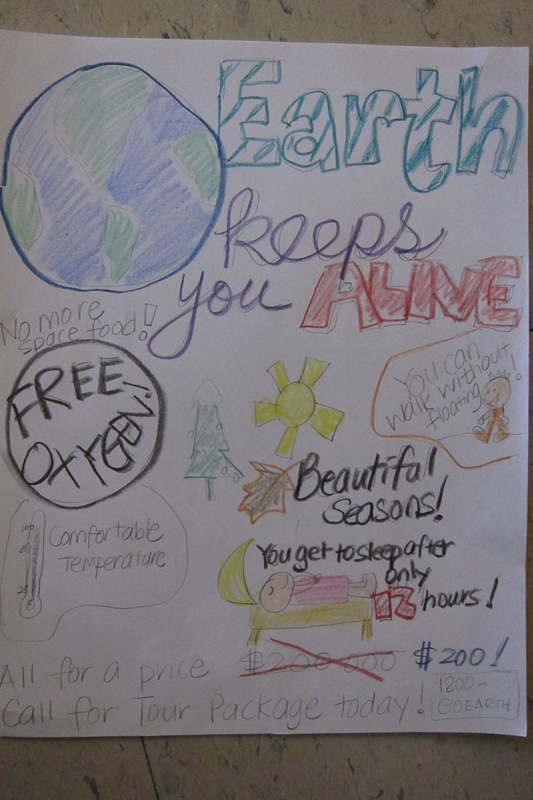 Earth
keeps
you ALIVE
No more
space food!
FREE
OXYGEN!
You can
walk without
floating!
Beautiful
Seasons!
100
Comfortable
Temperature
You get to sleep after
only
12 hours!
All for a price $200 000 $200!
Call for Tour Package today! 1800-
GOEARTH